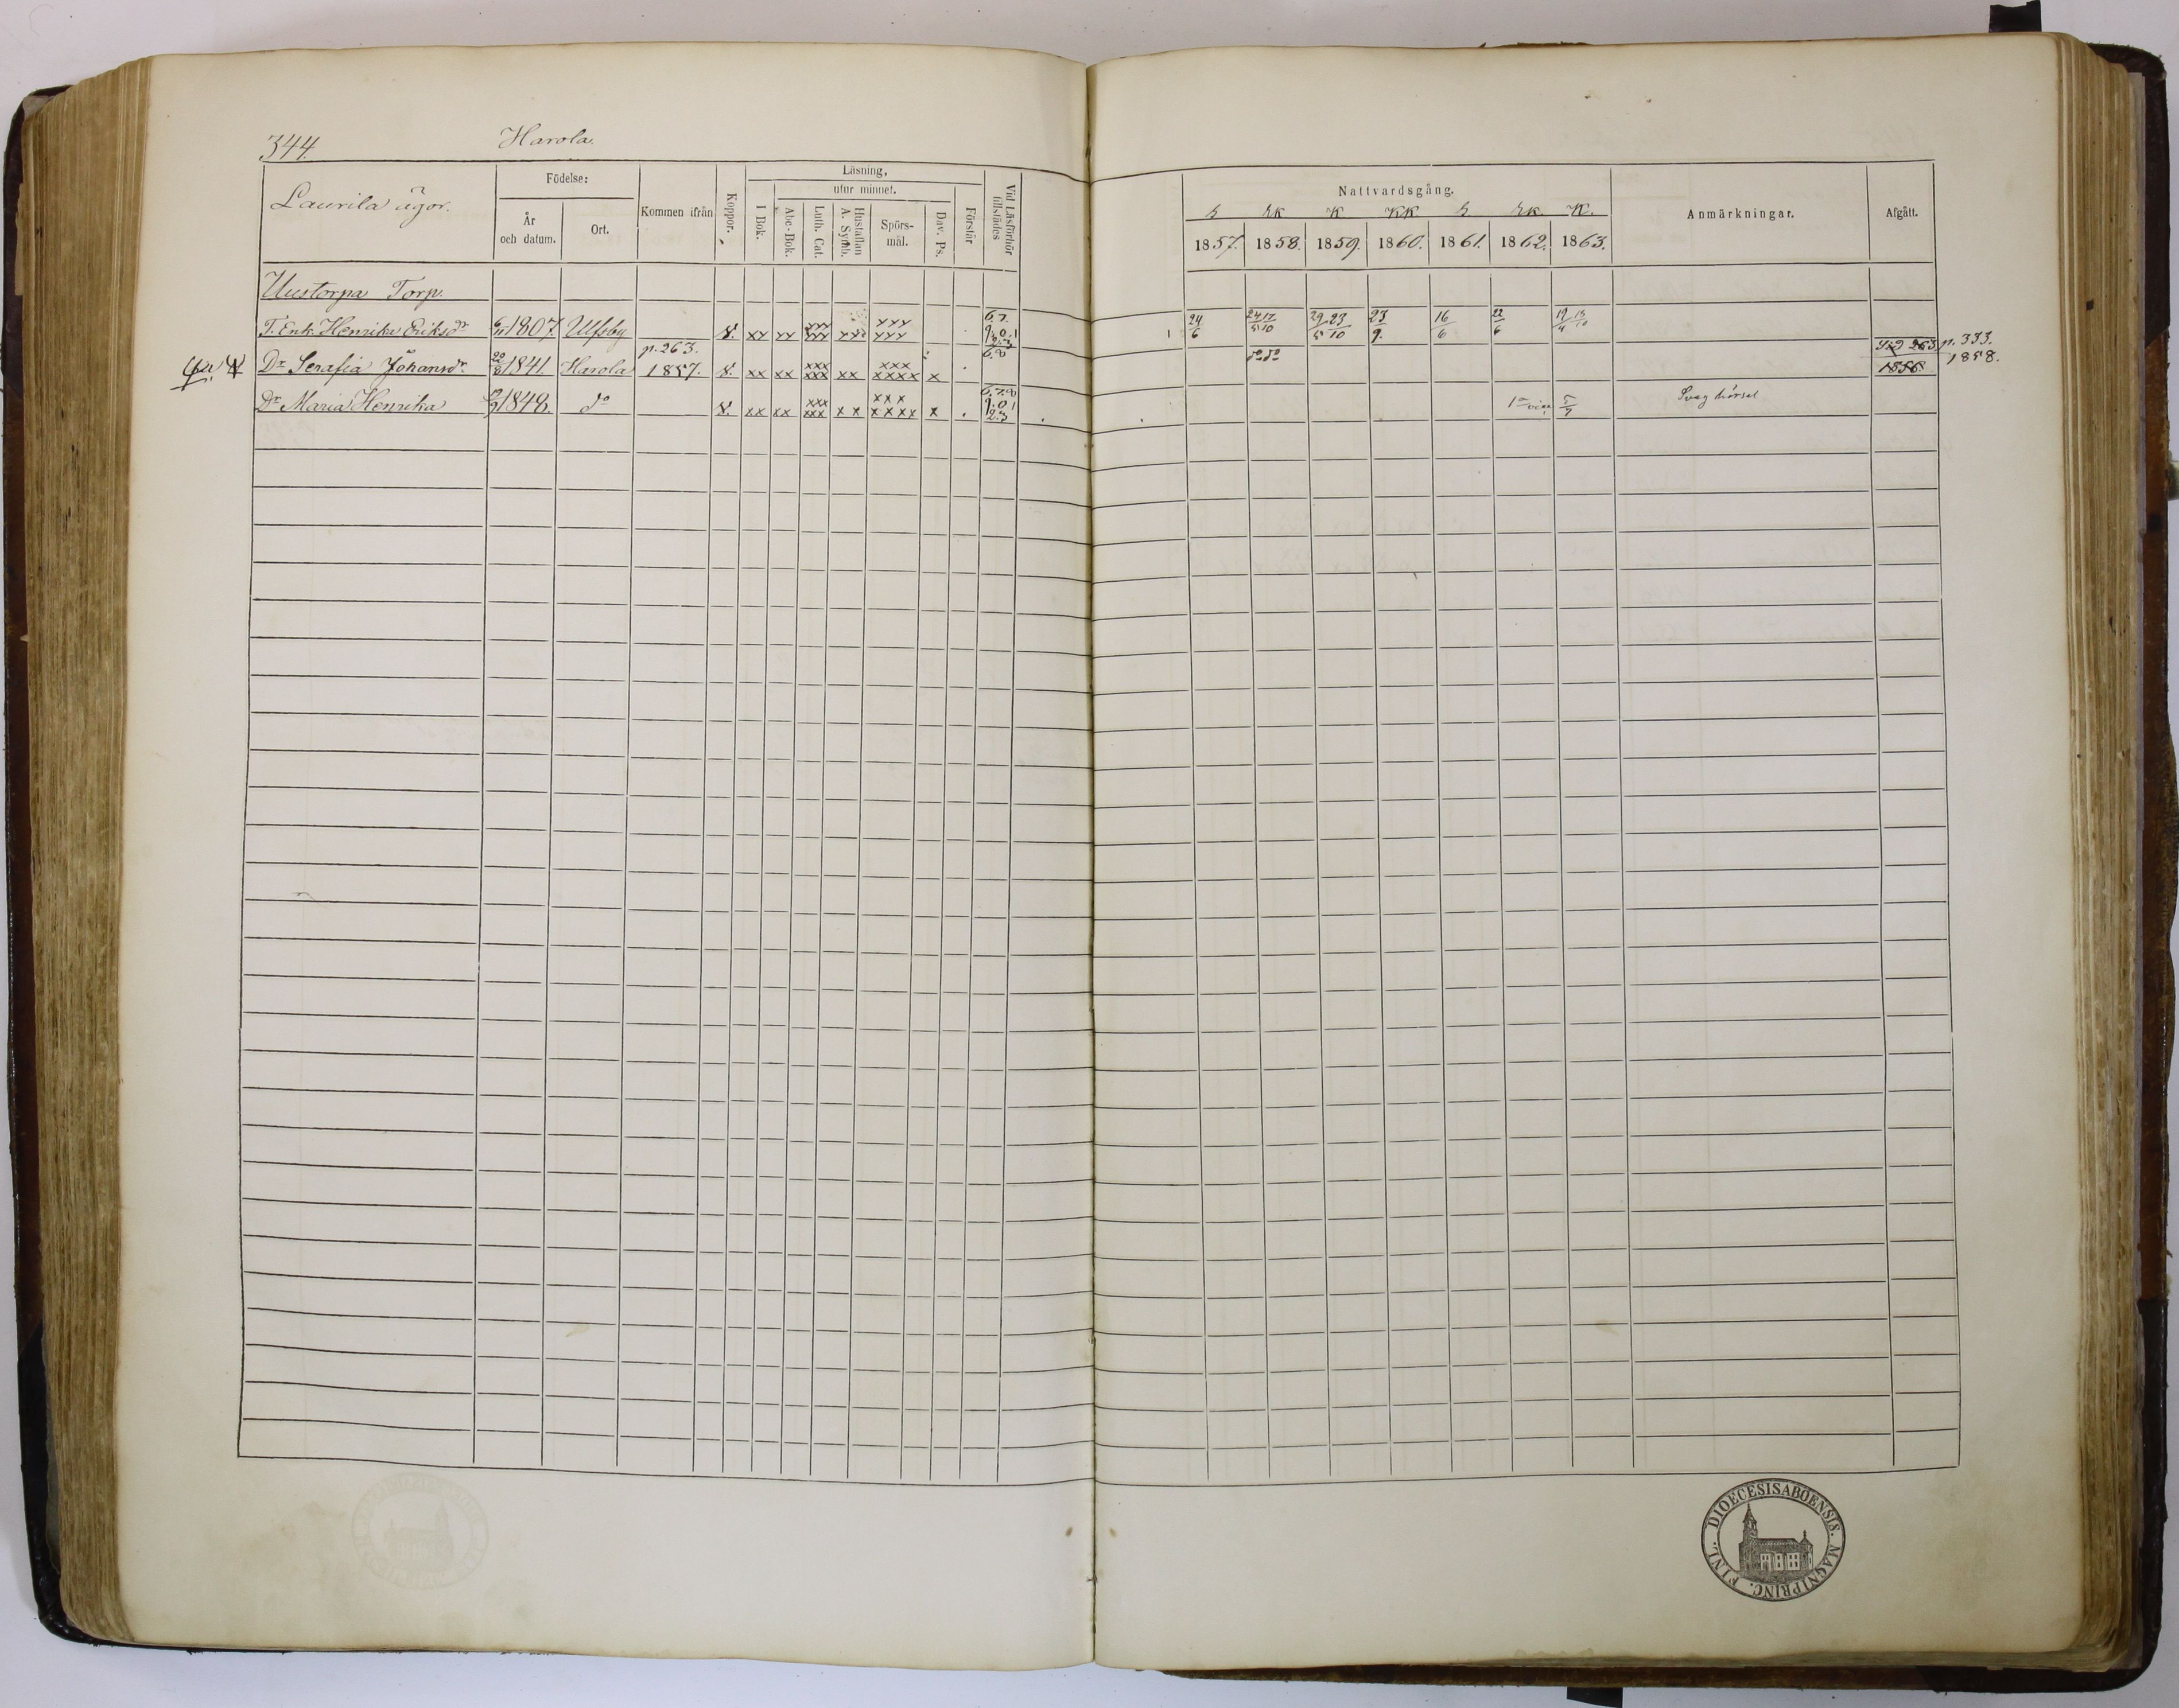 344. Harola.
Laurila ägor.
Födelse:
År och datum.
Ort.
Kommen ifrån
Koppor.
Läsning,
utur minnet.
I Bok.
Abc-Bok.
Luth. Cat.
Hustaflan A. Symb.
Spörs-mål.
Dav. Ps.
Förstår
Vid Läsförhör tillstädes
Nattvardsgång.
1857. 1858. 1859. 1860. 1861. 1862. 1863.
Anmärkningar.
Afgått.
Uustorpa Torp.
T. Enk. Henrika Eriksdr 6/11 1807. Ulfsby v. xx xx xxx xxx xxx xxx xxx 24/6 24/5 17/10 29/5 23/10 23/9. 16/6 22/6 19/4 18/10
Dr Serafia Johansdr 1841. Harola p. 263. 1857. v. xx xx xxx xxx xx xxx xxxx x do do 263. p. 333. 1856. 1858.
Dr Maria Henrika 1848. do v. xx xx xxx xxx xx xxx xxxx x 5/7 Svag hörsel
DIOECESIS ABOENSIS. MAGNI PRINC. FINL.